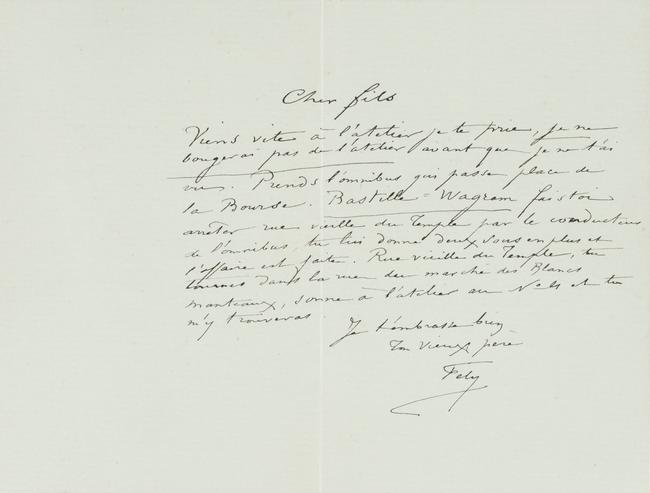 Cher fils
Viens vite à l'atelier je te prie, je ne
bougerai pas de l'atelier avant que je ne t'ai
vu. Prends l'omnibus qui passe place de
la Bourse. Bastille-Wagram fais toi
arrêter rue vieille du Temple par le conducteur
de l'omnibus, tu lui donne deux sous en plus et
l'affaire est faite. Rue vieille du Temple, tu
tournes dans la rue du marche des Blancs
manteaux, sonne à l'atelier au No et tu
m'y trouveras.
Je t'embrasse bien
Ton vieux père
Fely